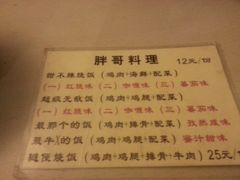 胖哥料理 12元/份
甜不辣烧饭(鸡肉+海鲜+配菜)
(一)红烧味 (二)咖喱味 (三)番茄味
超级无敌饭(鸡肉+鸡腿+配菜)
(一)红烧味 (二)咖喱味 (三)番茄味
最那个的饭(鸡肉+排骨+配菜) 孜然咸味
最牛的饭(鸡肉+鸡腿+配菜) 蜜汁糖味
随便烧饭(鸡肉+鸡腿+排骨+牛肉) 25元